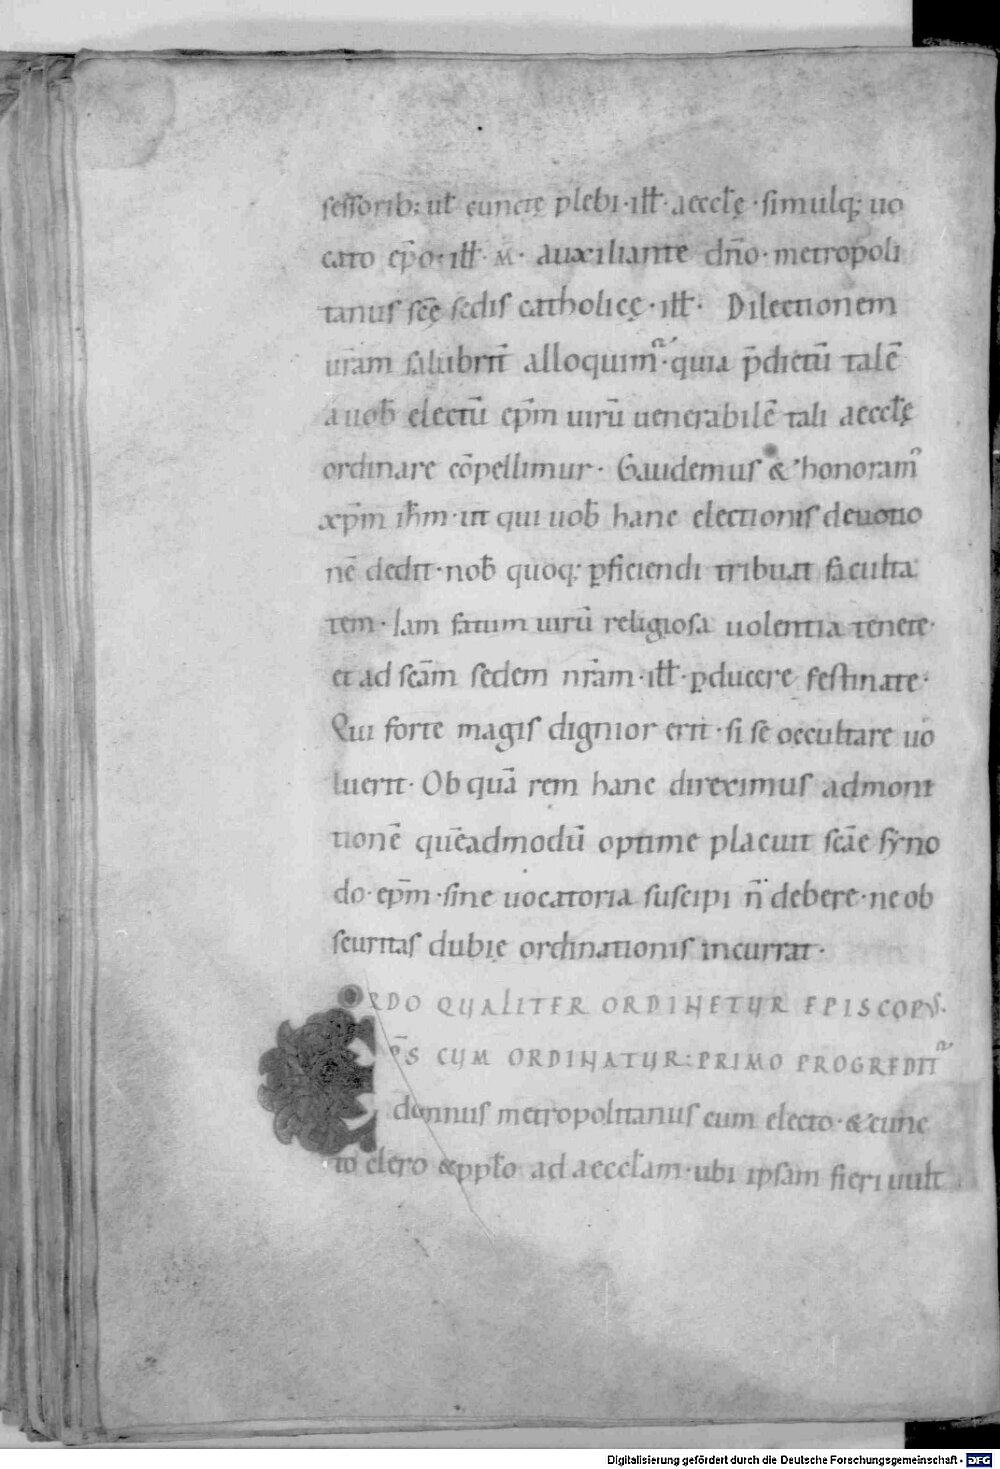 sessorib; ul̅ cunctę plebi · ill̅ · aeccl̅ę · simulq; uo
cato ep̅o · ill̅ · M · auxiliante dn̅o · metropoli
tanus sc̅ę sedis catholicę · ill̅ · Dilectionem
ur̅am salubrit̅ alloquim᷑ · quia p̅dictu̅ tale̅
a uob̅ electu̅ ep̅m uiru̅ uenerabile̅ tali aeccl̅ę
ordinare co̅pellimur · Gaudemus & honoram᷑
xp̅m ih̅m · ut qui uob̅ hanc electionis deuotio
ne̅ dedit · nob̅ quoq; ꝑficiendi tribuat faculta
tem · Iam fatum uiru̅ religiosa uolentia tenete ·
et ad sc̅am sedem nr̅am · ill̅ · ꝑducere festinate ·
Qui forte magis dignior erit · si se occultare uo
luerit · Ob qua̅ rem hanc direximus admoni
tione̅ que̅admodu̅ optime placuit sc̅ae syno
do · ep̅m · sine uocatoria suscipi n̅ debere · ne ob
scuritas dubię ordinationis incurrat ·
ORDO QUALITER ORDINETUR EPISCOPUS ·
EP̅S CUM ORDINATUR: PRIMO PROGREDIT᷑
domnus metropolitanus cum electo · & cunc
to clero & ppl̅o ad aeccl̅am · ubi ipsam fieri uult
Digitalisierung gefördert durch die Deutsche Forschungsgemeinschaft - DFG